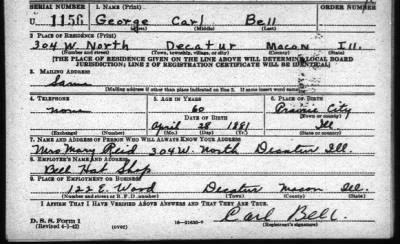 SERIAL NUMBER 1. NAME (Print) ORDER NUMBER
U 1156 George Carl Bell
(First) (Middle) (Last)
2. PLACE OF RESIDENCE (Print)
304 W. North Decatur Macon Ill.
(Number and street) (Town, township, village, or city) (County) (State)
[THE PLACE OF RESIDENCE GIVEN ON THE LINE ABOVE WILL DETERMINE LOCAL BOARD
JURISDICTION; LINE 2 OF REGISTRATION CERTIFICATE WILL BE IDENTICAL]
3. MAILING ADDRESS
Same
[Mailing address if other than place indicated on line 2. If same insert word same]
4. TELEPHONE 5. AGE IN YEARS 6. PLACE OF BIRTH
none 60 Prairie City
DATE OF BIRTH (Town or county)
April 28 1881 Ill.
(Exchange) (Number) (Mo.) (Day) (Yr.) (State or country)
7. NAME AND ADDRESS OF PERSON WHO WILL ALWAYS KNOW YOUR ADDRESS
Mrs Mary Reid 304 W. North Decatur Ill.
8. EMPLOYER'S NAME AND ADDRESS
Bell Hat Shop
9. PLACE OF EMPLOYMENT OR BUSINESS
122 E. Wood Decatur Macon Ill.
(Number and street or R. F. D. number) (Town) (County) (State)
I AFFIRM THAT I HAVE VERIFIED ABOVE ANSWERS AND THAT THEY ARE TRUE.
D. S. S. Form 1
(Revised 4-1-42) (over) Carl Bell.
(Registrant's signature)